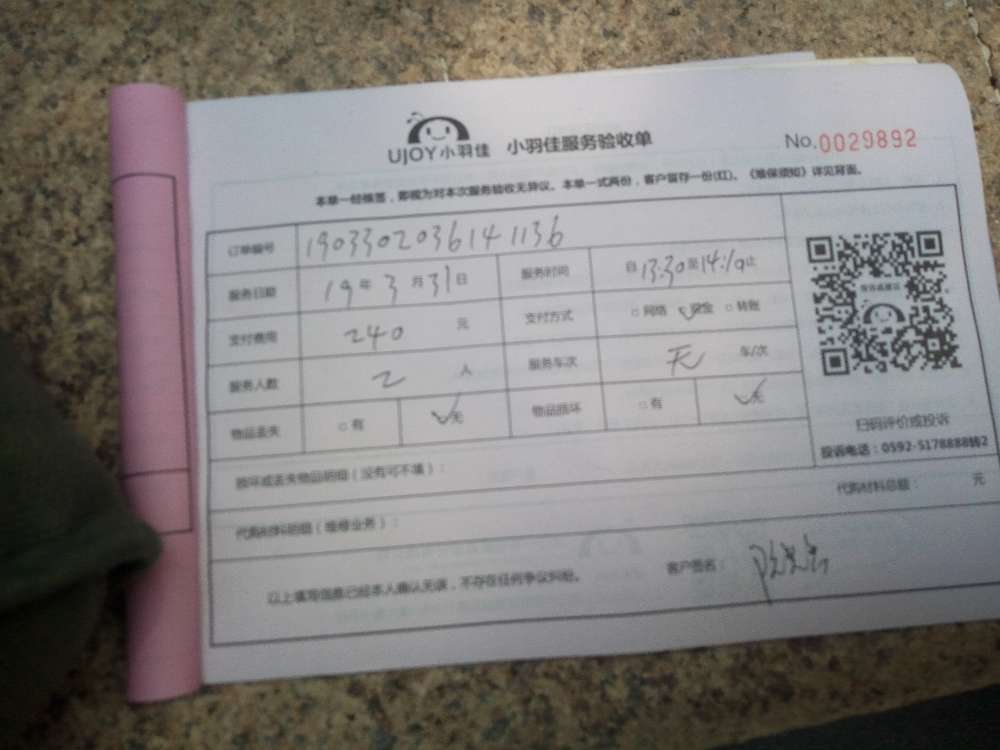 UJOY小羽佳 小羽佳服务验收单 No.0029892
本单一经摘签，即视为对本次服务验收无异议。本单一式两份，客户留存一份(红)。《维保须知》详见背面。
订单编号 1903302036141136
服务日期 19年3月31日 服务时间 自13:30至14:10止
支付费用 240 元 支付方式 □网络 ✓现金 □转账
服务人数 2 人 服务车次 无 车/次
物品丢失 □有 ✓无 物品损坏 □有 ✓无
扫码评价或投诉
投诉电话：0592-5178888转2
损坏或丢失物品明细（没有可不填）：
代购材料明细（维修业务）： 代购材料总额： 元
以上填写信息已经本人确认无误，不存在任何争议纠纷。 客户签名：